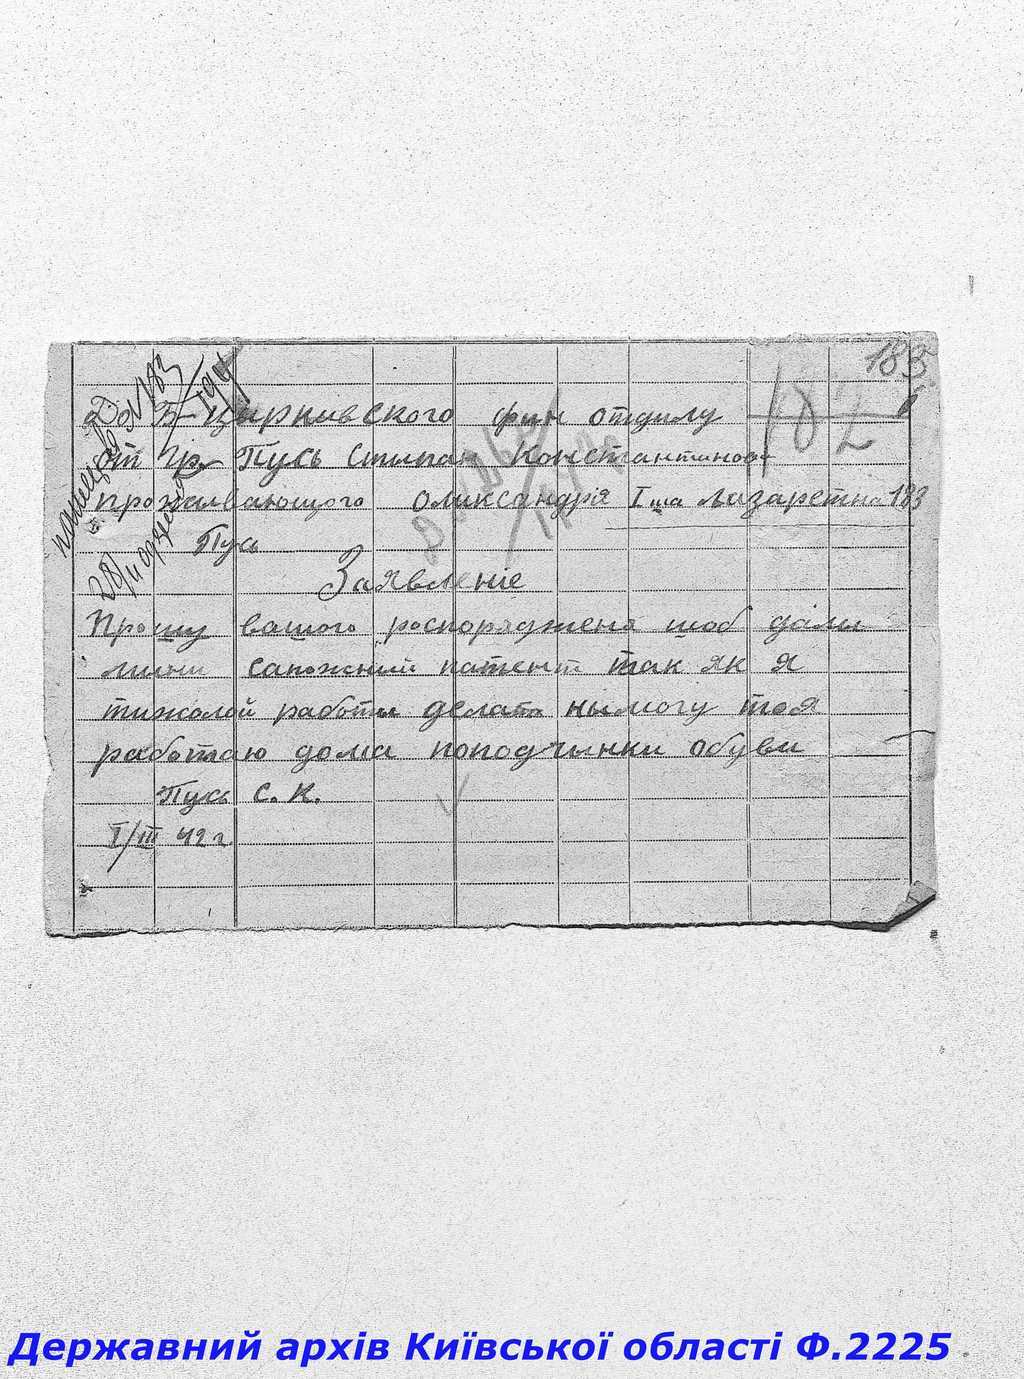 183
182
До Б-Циркивского фин отдилу
от гр. Пусь Стипан Константинова
проживающого Оликсандрія I ша Лизаретна 183
Пусь
Заявленіе
Прошу вашого роспоряджена шоб дали
мини сапожний патент так як я
тижолой работи делать нымогу то я
работаю дома поподчынки обуви
Пусь С. К.
I/III 42 г
Державний архів Київської області Ф.2225